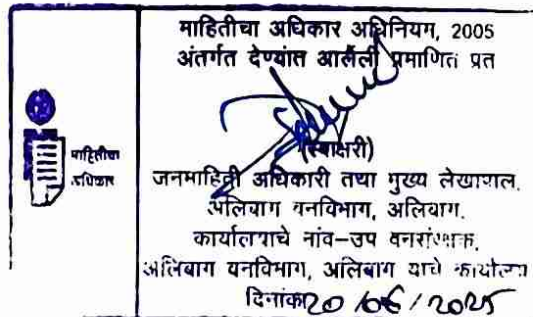 माहितीचा अधिकार अधिनियम, 2005
अंतर्गत देण्यात आलेली प्रमाणित प्रत
माहितीचा
अधिकार
(स्वाक्षरी)
जनमाहिती अधिकारी तथा मुख्य लेखापाल,
अलिबाग वनविभाग, अलिबाग.
कार्यालयाचे नांव-उप वनसंरक्षक,
अलिबाग वनविभाग, अलिबाग याचे कार्यालय
दिनांक 20/06/2025